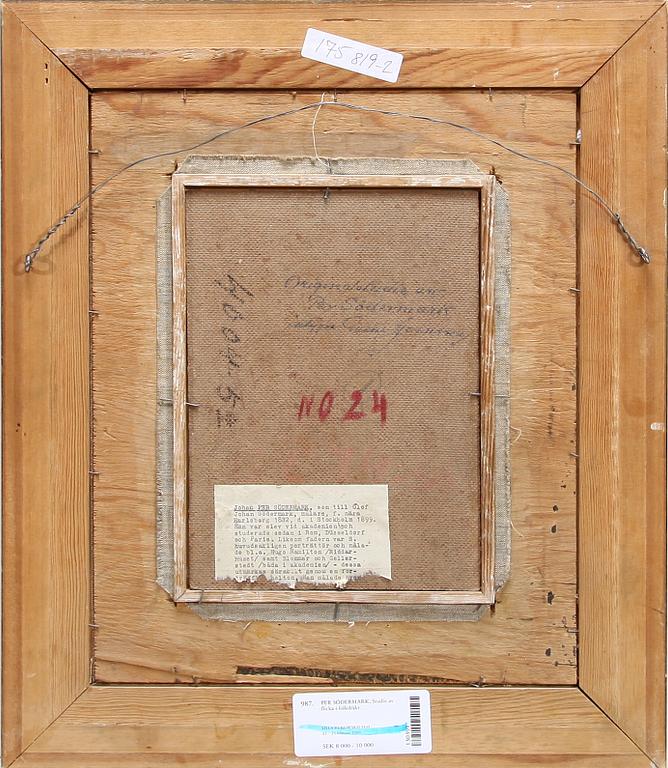 175 819-2
Originalstudie av
Per Södermark
4004-52
NO 24
Johan PER SÖDERMARK, son till Olof
Johan Södermark, målare, f. nära
Karlsborg 1822, d. i Stockholm 1899.
Han var elev vid akademien och
studerade sedan i Rom, Düsseldorf
och Paris. Liksom fadern var S.
huvudsakligen porträttör och måla-
de bl.a. Hugo Hamilton /Riddar-
huset/ samt Blommér och Geller-
stedt /båda i akademien/ - dessa
utmärkas särskilt genom en för-
Han målade
987. PER SÖDERMARK, Studie av
flicka i
SEK 8 000 - 10 000